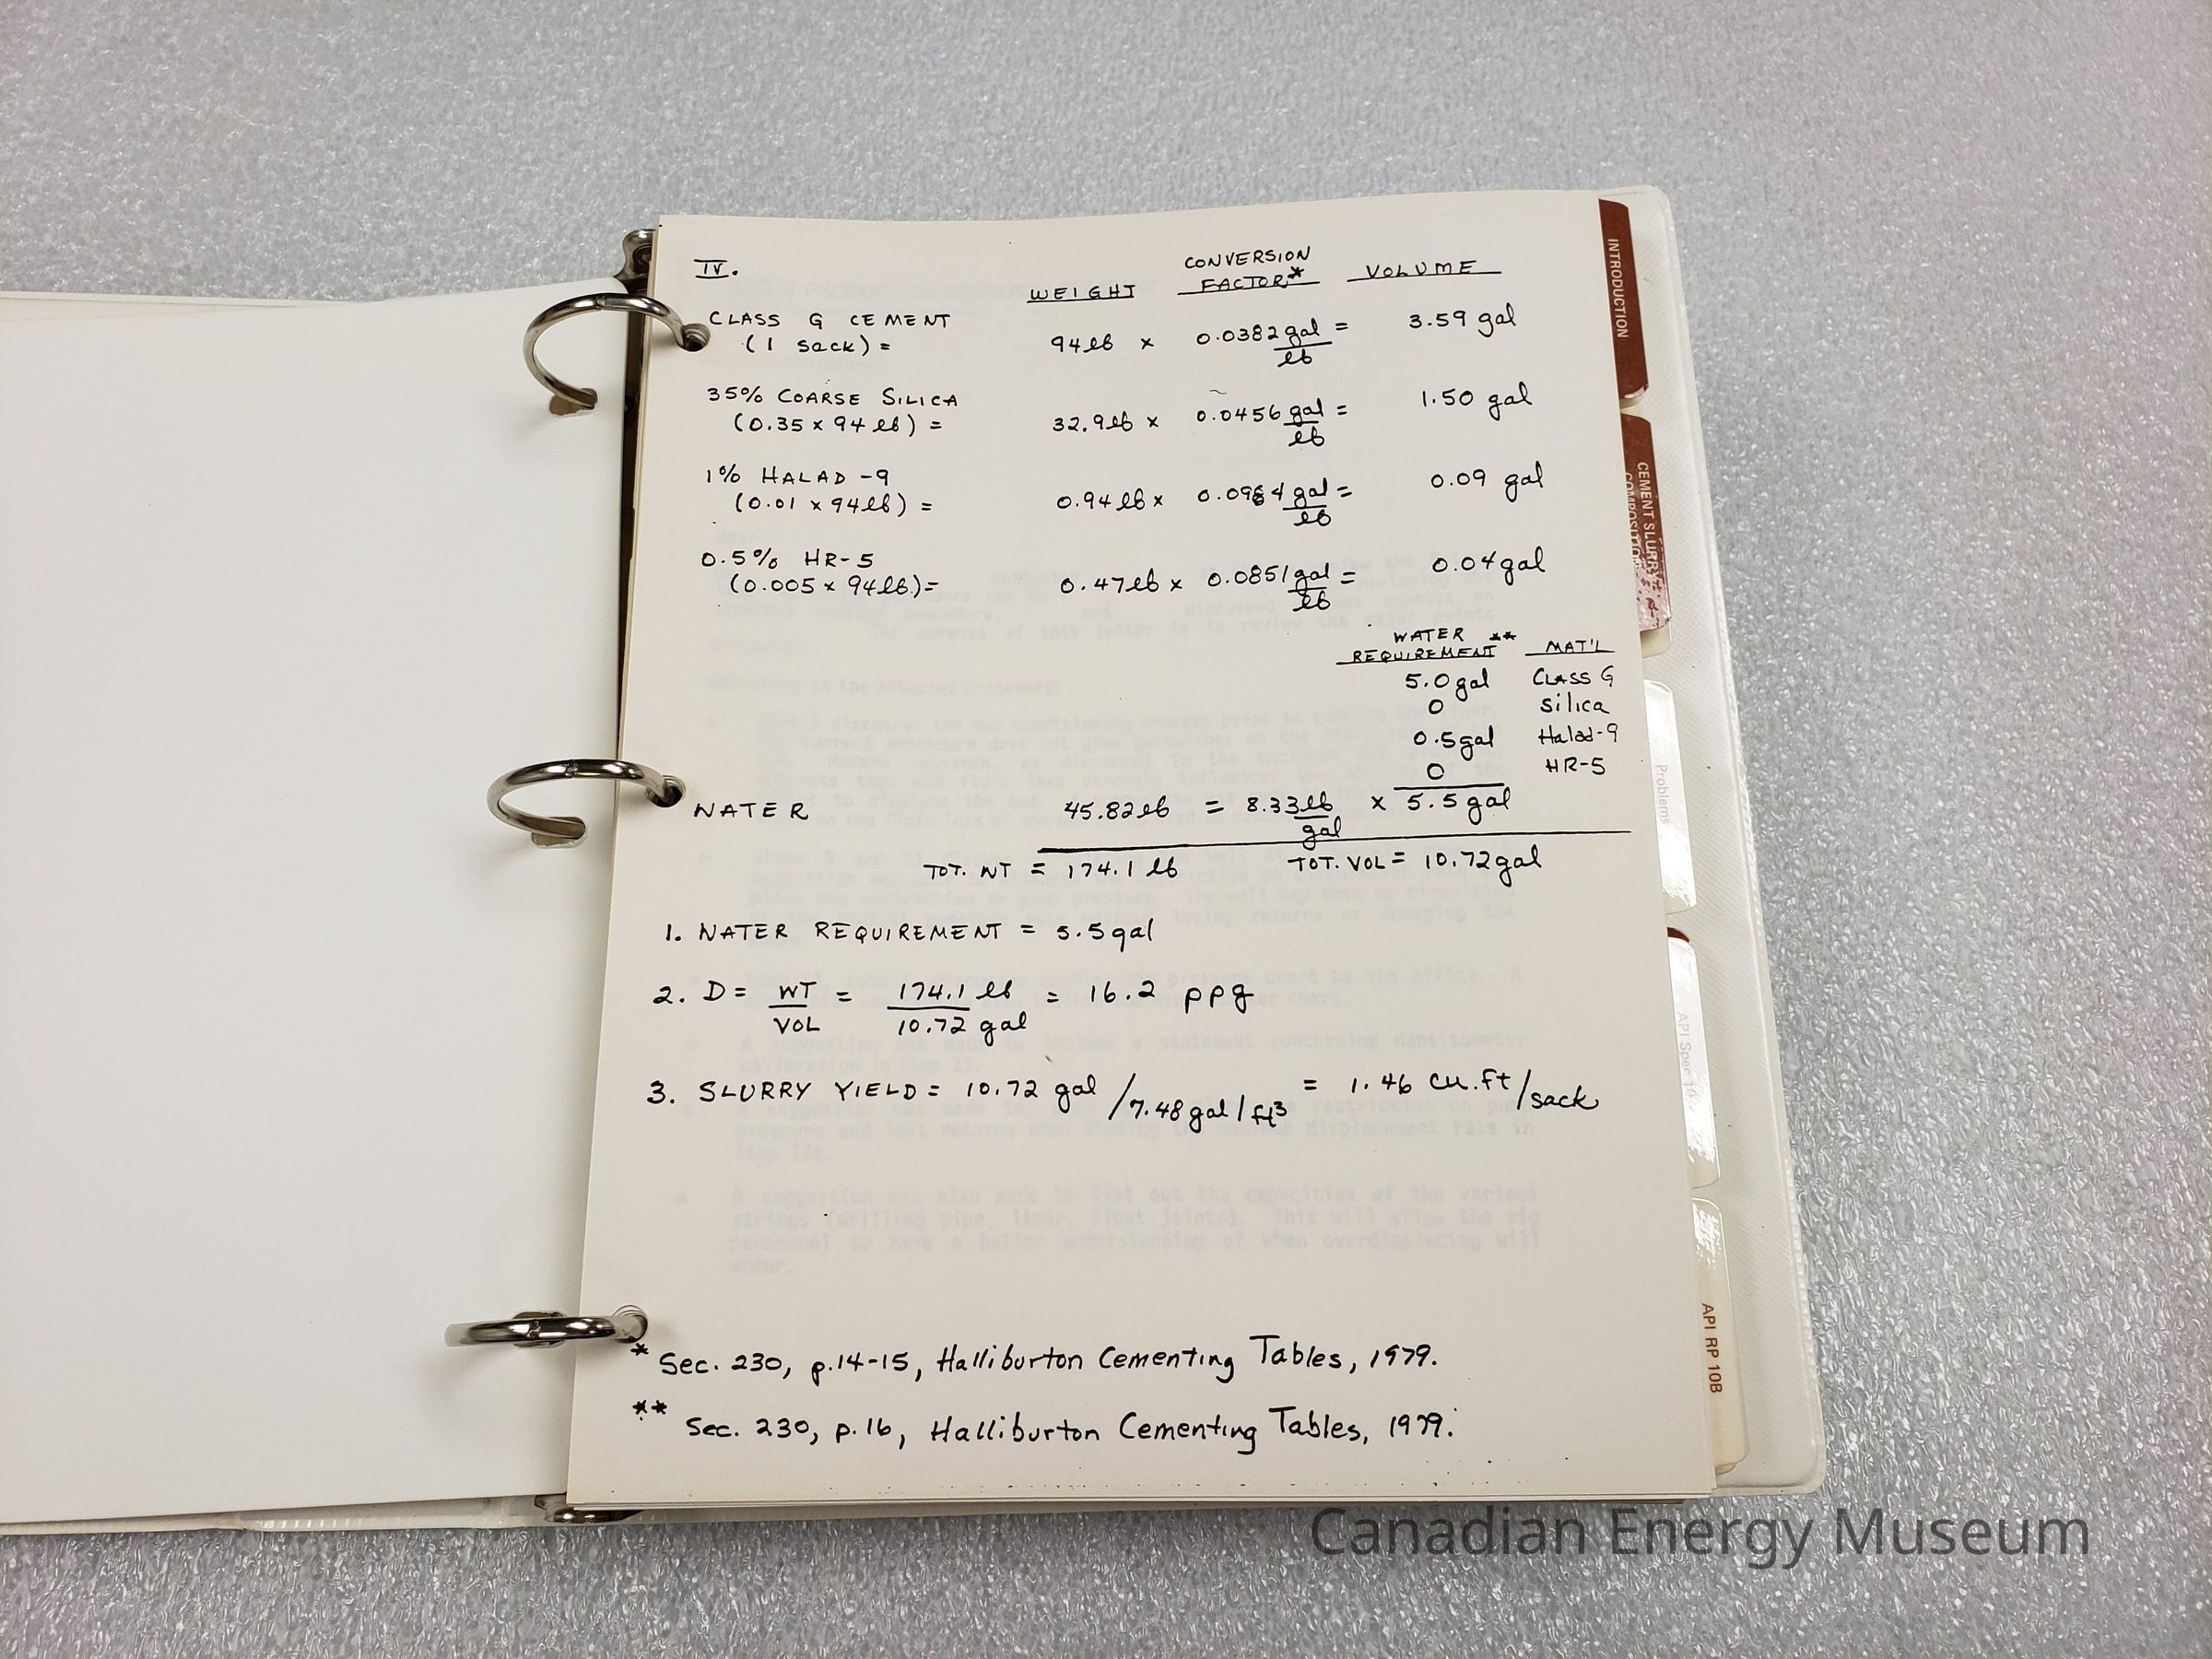 IV.
WEIGHT CONVERSION FACTOR* VOLUME
CLASS G CEMENT
(1 sack) = 94 lb x 0.0382 gal/lb = 3.59 gal
35% COARSE SILICA
(0.35 x 94 lb) = 32.9 lb x 0.0456 gal/lb = 1.50 gal
1% HALAD-9
(0.01 x 94 lb) = 0.94 lb x gal/lb = 0.09 gal
0.5% HR-5
(0.005 x 94 lb) = 0.47 lb x 0.0851 gal/lb = 0.04 gal
WATER REQUIREMENT** MAT'L
5.0 gal CLASS G
0 Silica
0.5 gal Halad-9
0 HR-5
WATER 45.82 lb = 8.33 lb/gal x 5.5 gal
TOT. WT = 174.1 lb TOT. VOL = 10.72 gal
1. WATER REQUIREMENT = 5.5 gal
2. D = WT/VOL = 174.1 lb/10.72 gal = 16.2 ppg
3. SLURRY YIELD = 10.72 gal / 7.48 gal/ft³ = 1.46 cu.ft/sack
* Sec. 230, p.14-15, Halliburton Cementing Tables, 1979.
** Sec. 230, p.16, Halliburton Cementing Tables, 1979.
INTRODUCTION
CEMENT SLURRY
COMPOSITION
Problems
API Spec 10
API RP 10B
Canadian Energy Museum